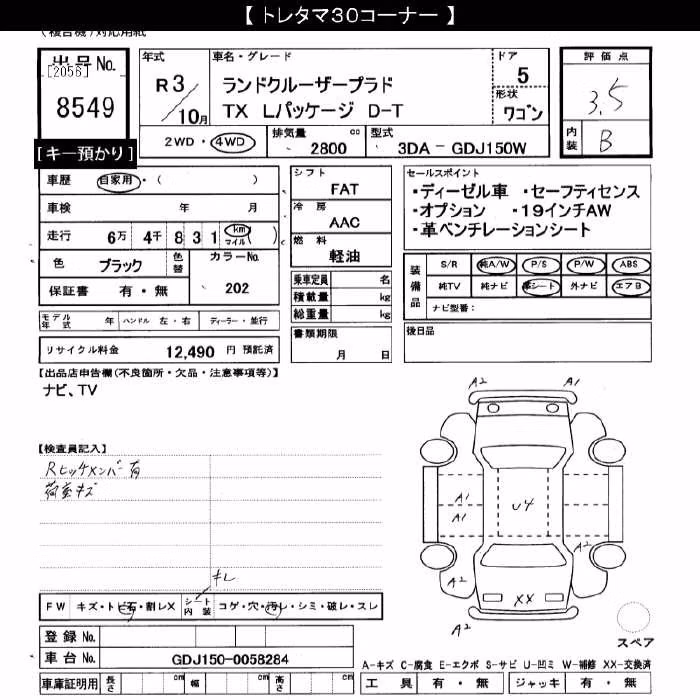 【 トレタマ30コーナー 】
(複合機)対応用紙
出品No.
[2056]
8549
[キー預かり]
年式
R 3/10月
車名・グレード
ランドクルーザープラド
TX Lパッケージ D-T
ドア
5
形状
ワゴン
2WD・4WD
排気量 2800 cc
型式 3DA-GDJ150W
評価点
3.5
内装 B
車歴 自家用・( )
車検 年 月
走行 6万 4千 8 3 1 km マイル ( )
色 ブラック 色替 カラーNo.
保証書 有・無 202
モデル年式 年 ハンドル 左・右 ディーラー・並行
リサイクル料金 12,490 円 預託済
シフト
FAT
冷房
AAC
燃料
軽油
乗車定員 名
積載量 kg
総重量 kg
書類期限
月 日
セールスポイント
・ディーゼル車 ・セーフティセンス
・オプション ・19インチAW
・革ベンチレーションシート
装備品
S/R 純A/W P/S P/W ABS
純TV 純ナビ 革シート 外ナビ エアB
ナビ型番:
後日品
[出品店申告欄(不良箇所・欠品・注意事項等)]
ナビ、TV
【検査員記入】
Rヒッチメンバー有
荷室キズ
キレ
FW キズ・トビ石・割レX シート内装 コゲ・穴・汚レ・シミ・破レ・スレ
登録No.
車台No. GDJ150-0058284
車庫証明用 長さ cm 幅 cm 高さ cm
A2 A1
A1
A1
U4
A2
A2
XX
A2
スペア
A-キズ C-腐食 E-エクボ S-サビ U-凹ミ W-補修 XX-交換済
工具 有・無 ジャッキ 有・無